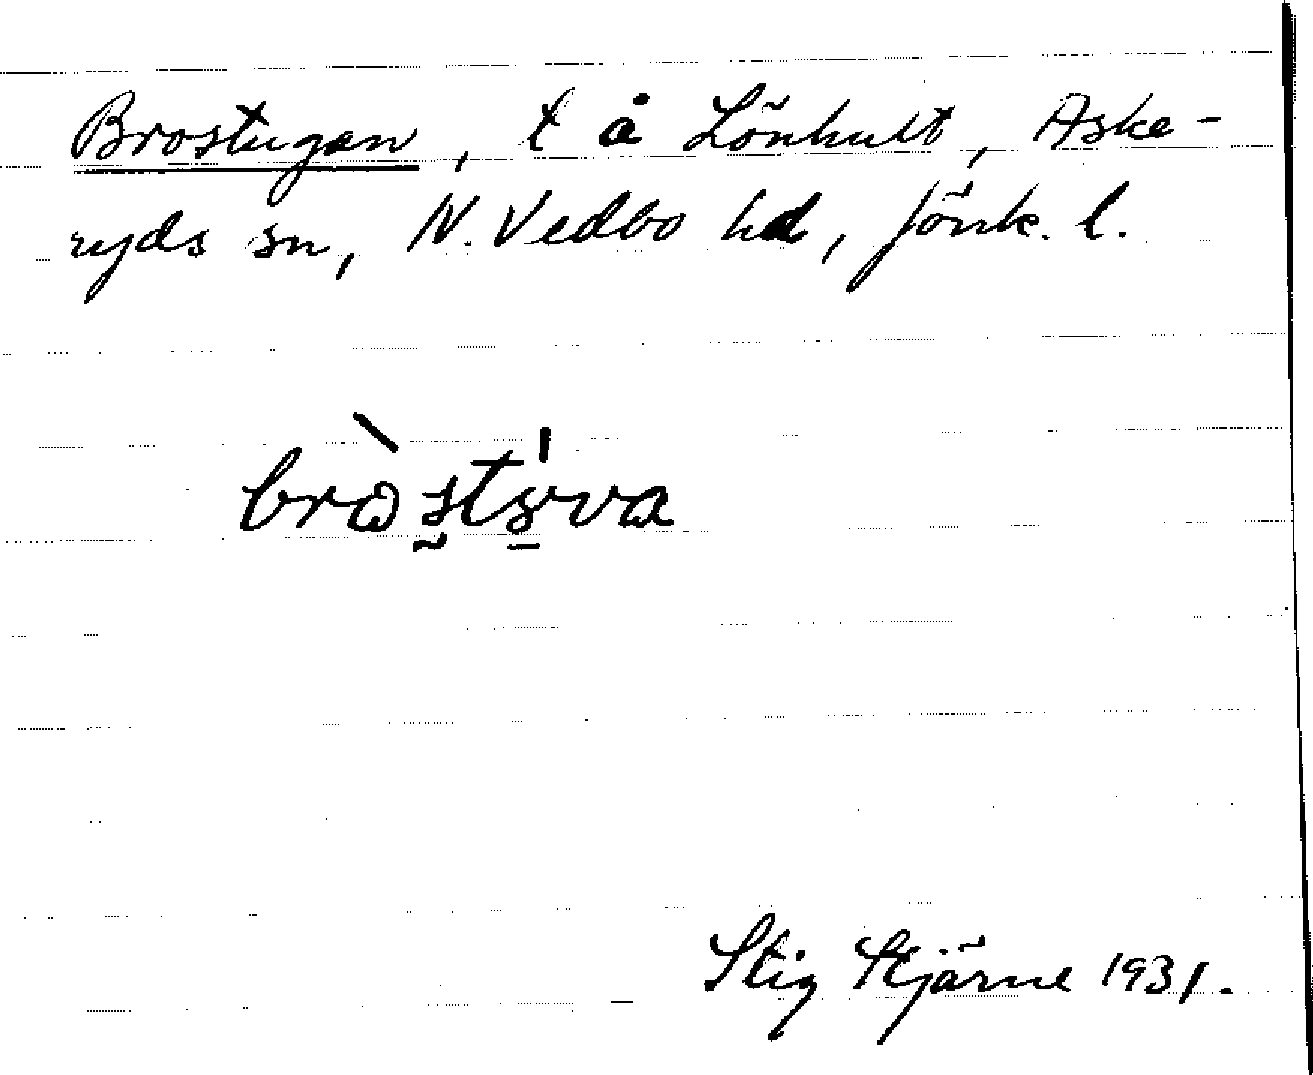 Brostugan, t å Lönhult, Aske-
ryds sn, N. Vedbo hd, Jönk. l.
Stig Stjärne 1931.